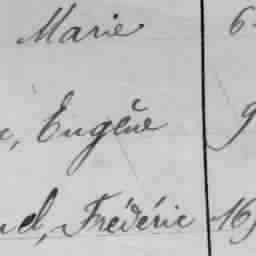 Marie 6
, Eugène 9
el, Fréderic 16